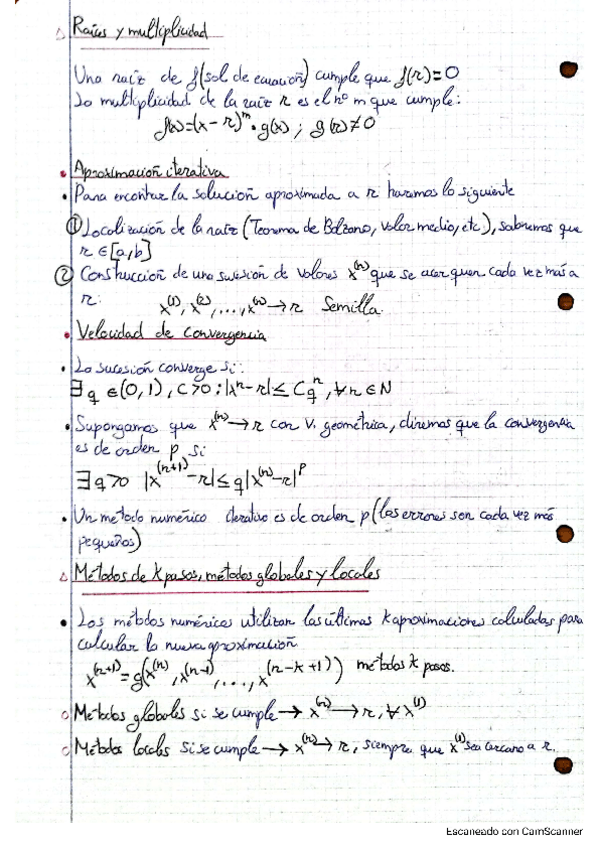 Raíces y multiplicidad
Una raíz de f(sol de ecuación) cumple que f(r)=0
La multiplicidad de la raíz r es el nº m que cumple:
f(x)=(x-r)^m · g(x) ; g(r)≠0
Aproximación iterativa
• Para encontrar la solución aproximada a r haremos lo siguiente
① Localización de la raíz (Teorema de Bolzano, valor medio, etc), sabremos que
r ∈ [a,b]
② Construcción de una sucesión de valores x^(n) que se acerquen cada vez más a
r: x^(1), x^(2), ..., x^(n) → r Semilla.
• Velocidad de convergencia
• La sucesión converge si:
∃ q ∈ (0,1), C>0 : |x^n - r| ≤ Cq^n, ∀ n ∈ N
• Supongamos que x^(n) → r con v. geométrica, diremos que la convergencia
es de orden p si
∃ q>0 |x^(n+1) - r| ≤ q|x^(n) - r|^p
• Un método numérico iterativo es de orden p (los errores son cada vez más
pequeños)
Métodos de k pasos, métodos globales y locales
• Los métodos numéricos utilizan las últimas k aproximaciones calculadas para
calcular la nueva aproximación
x^(n+1) = g(x^(n), x^(n-1), ..., x^(n-k+1)) métodos k pasos.
○ Métodos globales si se cumple → x^(n) → r, ∀ x^(1)
○ Métodos locales si se cumple → x^(n) → r, siempre que x^(1) sea cercano a r.
Escaneado con CamScanner